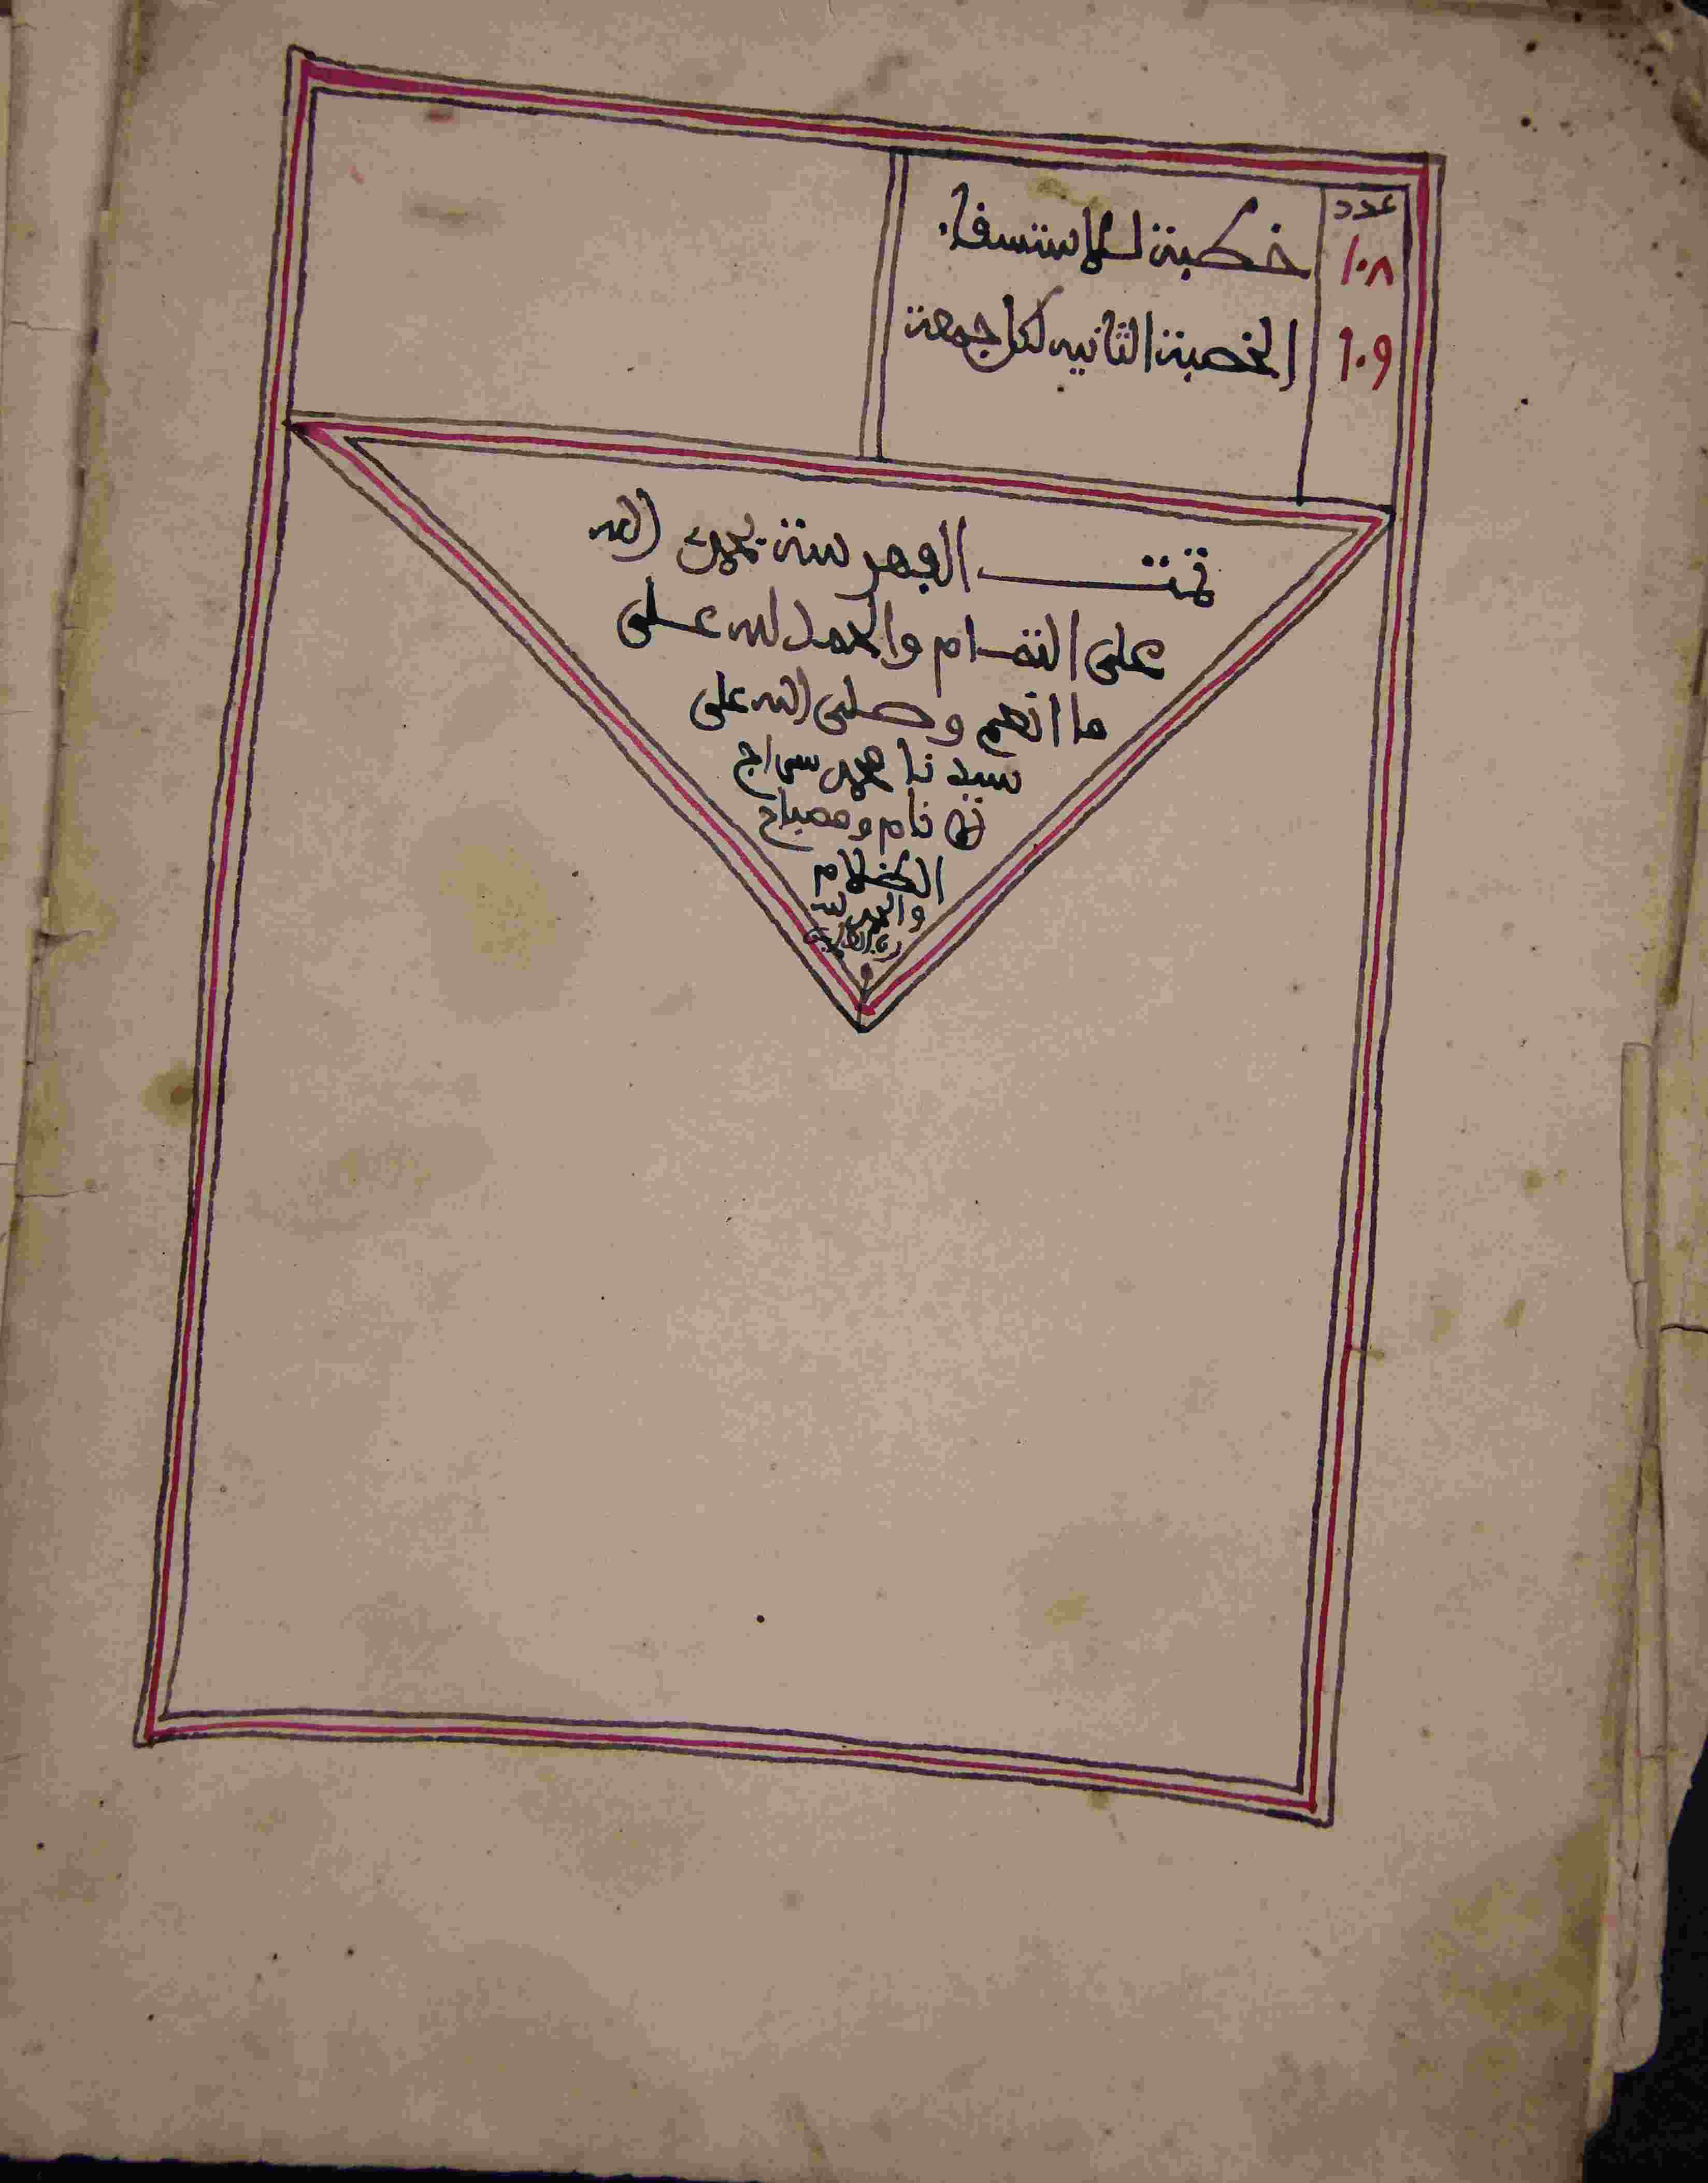 عدد
١٠٨ خطبة للاستسقاء
١٠٩ الخطبة الثانيه لكل جمعة
تمت الفهرسة بحمد الله
على التمام والحمد لله على
ما انعم وصلى الله على
سيدنا محمد سراج
نام ومصباح
الظلام
والحمد لله
رب العالمين